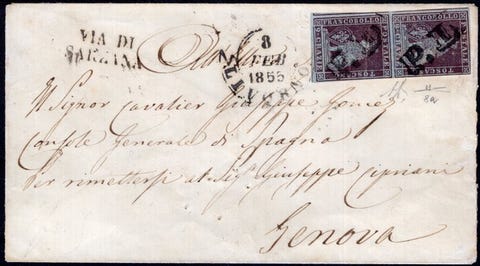 VIA DI
SARZANA
LIVORNO
8
FEB
1855
FRANCOBOLLO
POSTALE
TOSCANO
FRANCOBOLLO
POSTALE
TOSCANO
P.D.
P.D.
8a
Al
Il Signor Cavalier Giuseppe Gomez
Console Generale di Spagna
Per rimettersi al Sigr. Giuseppe Cipriani
Genova